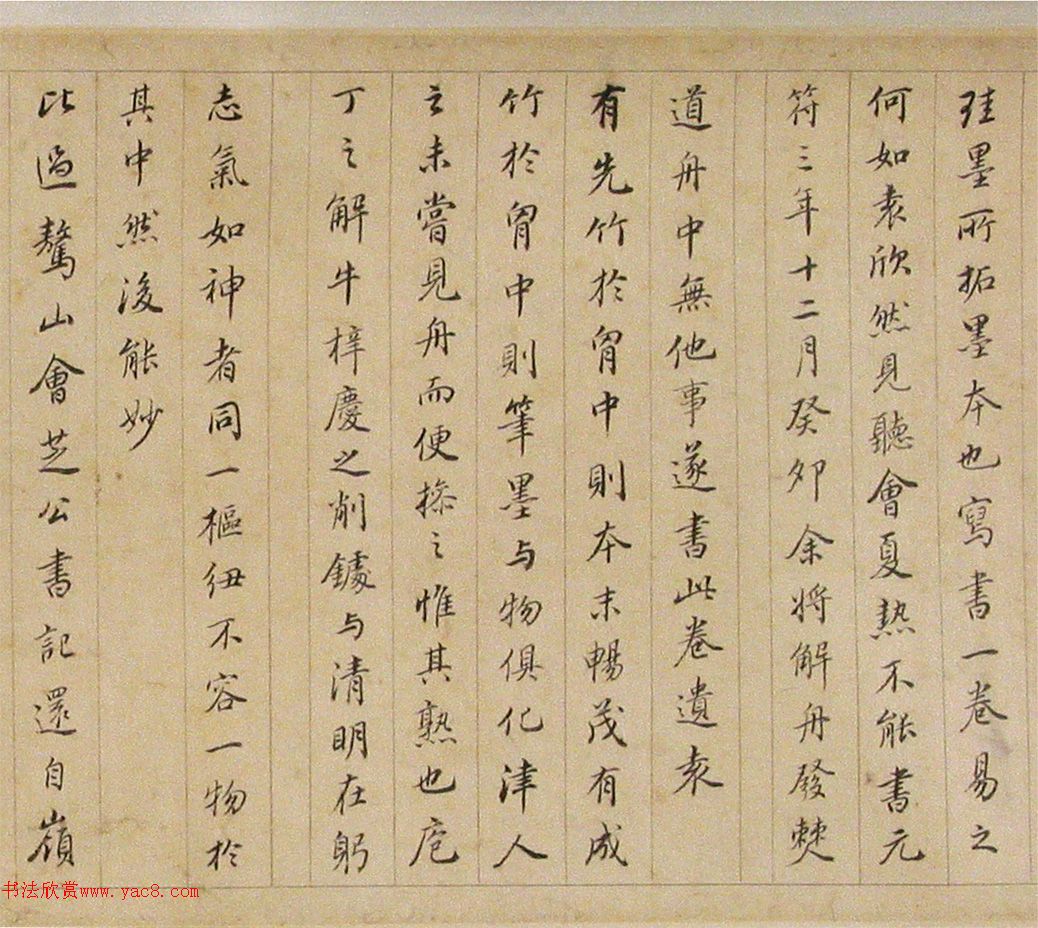 珪墨所拓墨本也寫書一卷易之
何如袁欣然見聽會夏熱不能書元
符三年十二月癸卯余將解舟發僰
道舟中無他事遂書此卷遺袁
有先竹於胷中則本末暢茂有成
竹於胷中則筆墨与物俱化津人
之未嘗見舟而便操之惟其熟也庖
丁之解牛梓慶之削鐻与清明在躬
志氣如神者同一樞紐不容一物於
其中然後能妙
比過驁山會芝公書記還自嶺
书法欣赏www.yac8.com